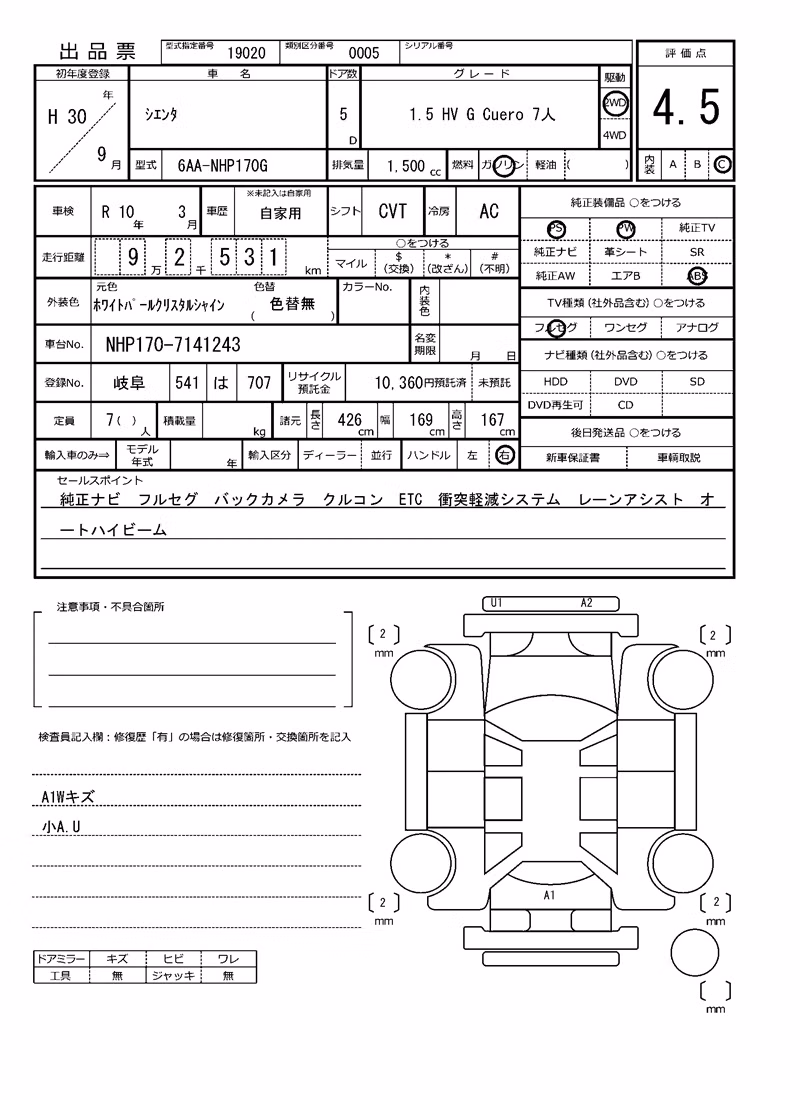 出品票 型式指定番号 19020 類別区分番号 0005 シリアル番号
評価点
4.5
内装 A B C
初年度登録 車名 ドア数 グレード 駆動
H 30 年 9 月 シエンタ 5 D 1.5 HV G Cuero 7人 2WD 4WD
型式 6AA-NHP170G 排気量 1,500 cc 燃料 ガソリン 軽油 ( )
車検 R 10 年 3 月 車歴 ※未記入は自家用 自家用 シフト CVT 冷房 AC
走行距離 9 万 2 千 5 3 1 km ○をつける
マイル $(交換) *(改ざん) #(不明)
外装色 元色 ホワイトパールクリスタルシャイン 色替 ( 色替無 ) カラーNo. 内装色
車台No. NHP170-7141243 名変期限 月 日
登録No. 岐阜 541 は 707 リサイクル預託金 10,360円預託済 未預託
定員 7( ) 人 積載量 kg 諸元 長さ 426 cm 幅 169 cm 高さ 167 cm
輸入車のみ⇒ モデル年式 年 輸入区分 ディーラー 並行 ハンドル 左 右
純正装備品 ○をつける
PS PW 純正TV
純正ナビ 革シート SR
純正AW エアB ABS
TV種類(社外品含む)○をつける
フルセグ ワンセグ アナログ
ナビ種類(社外品含む)○をつける
HDD DVD SD
DVD再生可 CD
後日発送品 ○をつける
新車保証書 車輌取説
セールスポイント
純正ナビ フルセグ バックカメラ クルコン ETC 衝突軽減システム レーンアシスト オ
ートハイビーム
注意事項・不具合箇所
検査員記入欄：修復歴「有」の場合は修復箇所・交換箇所を記入
A1Wキズ
小A.U
ドアミラー キズ ヒビ ワレ
工具 無 ジャッキ 無
U1 A2
〔2〕mm
〔2〕mm
A1
〔2〕mm
〔2〕mm
〔 〕mm